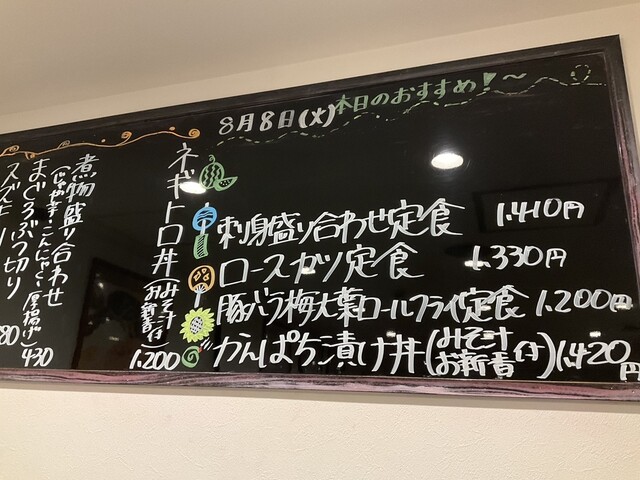 8月8日(火)本日のおすすめ!～
刺身盛り合わせ定食 1.410円
ロースカツ定食 1.330円
豚バラ梅大葉ロールフライ定食 1.200円
かんぱち漬け丼(みそ汁お新香付)1.420円
ネギトロ丼 みそ汁お新香付 1.200
煮物盛り合わせ 430
(じゃが芋・こんにゃく・厚揚げ)
まぐろぶつ切り 80